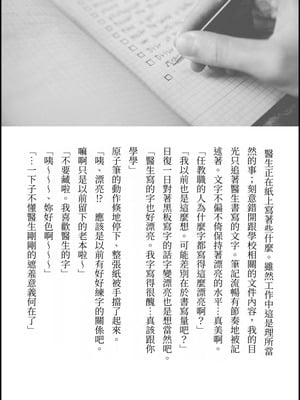 醫生正在紙上寫著些什麼。雖然工作中這是理所當
然的事；刻意錯開跟學校相關的文件內容，我的目
光只追著醫生書寫的文字。筆記流暢有節奏地被記
述著。文字不偏不倚保持著漂亮的水平…真美啊。
「任教職的人為什麼字都寫得這麼漂亮啊？」
「我以前也是這麼想。可能差別在於書寫量吧？」
日復一日對著黑板寫字的話字變漂亮也是想當然吧。
「醫生寫的字也好漂亮。我字寫得很醜…真該跟你
學學」
原子筆的動作倏地停下、整張紙被手擋了起來。
「咦、漂亮!?　應該是以前有好好練字的關係吧。
嘛啊只是以前留下的老本啦~」
「不要藏啦。我喜歡醫生的字」
「咦~~~、妳好色啊~~~」
「…一下子不懂醫生剛剛的遮羞意義何在了」